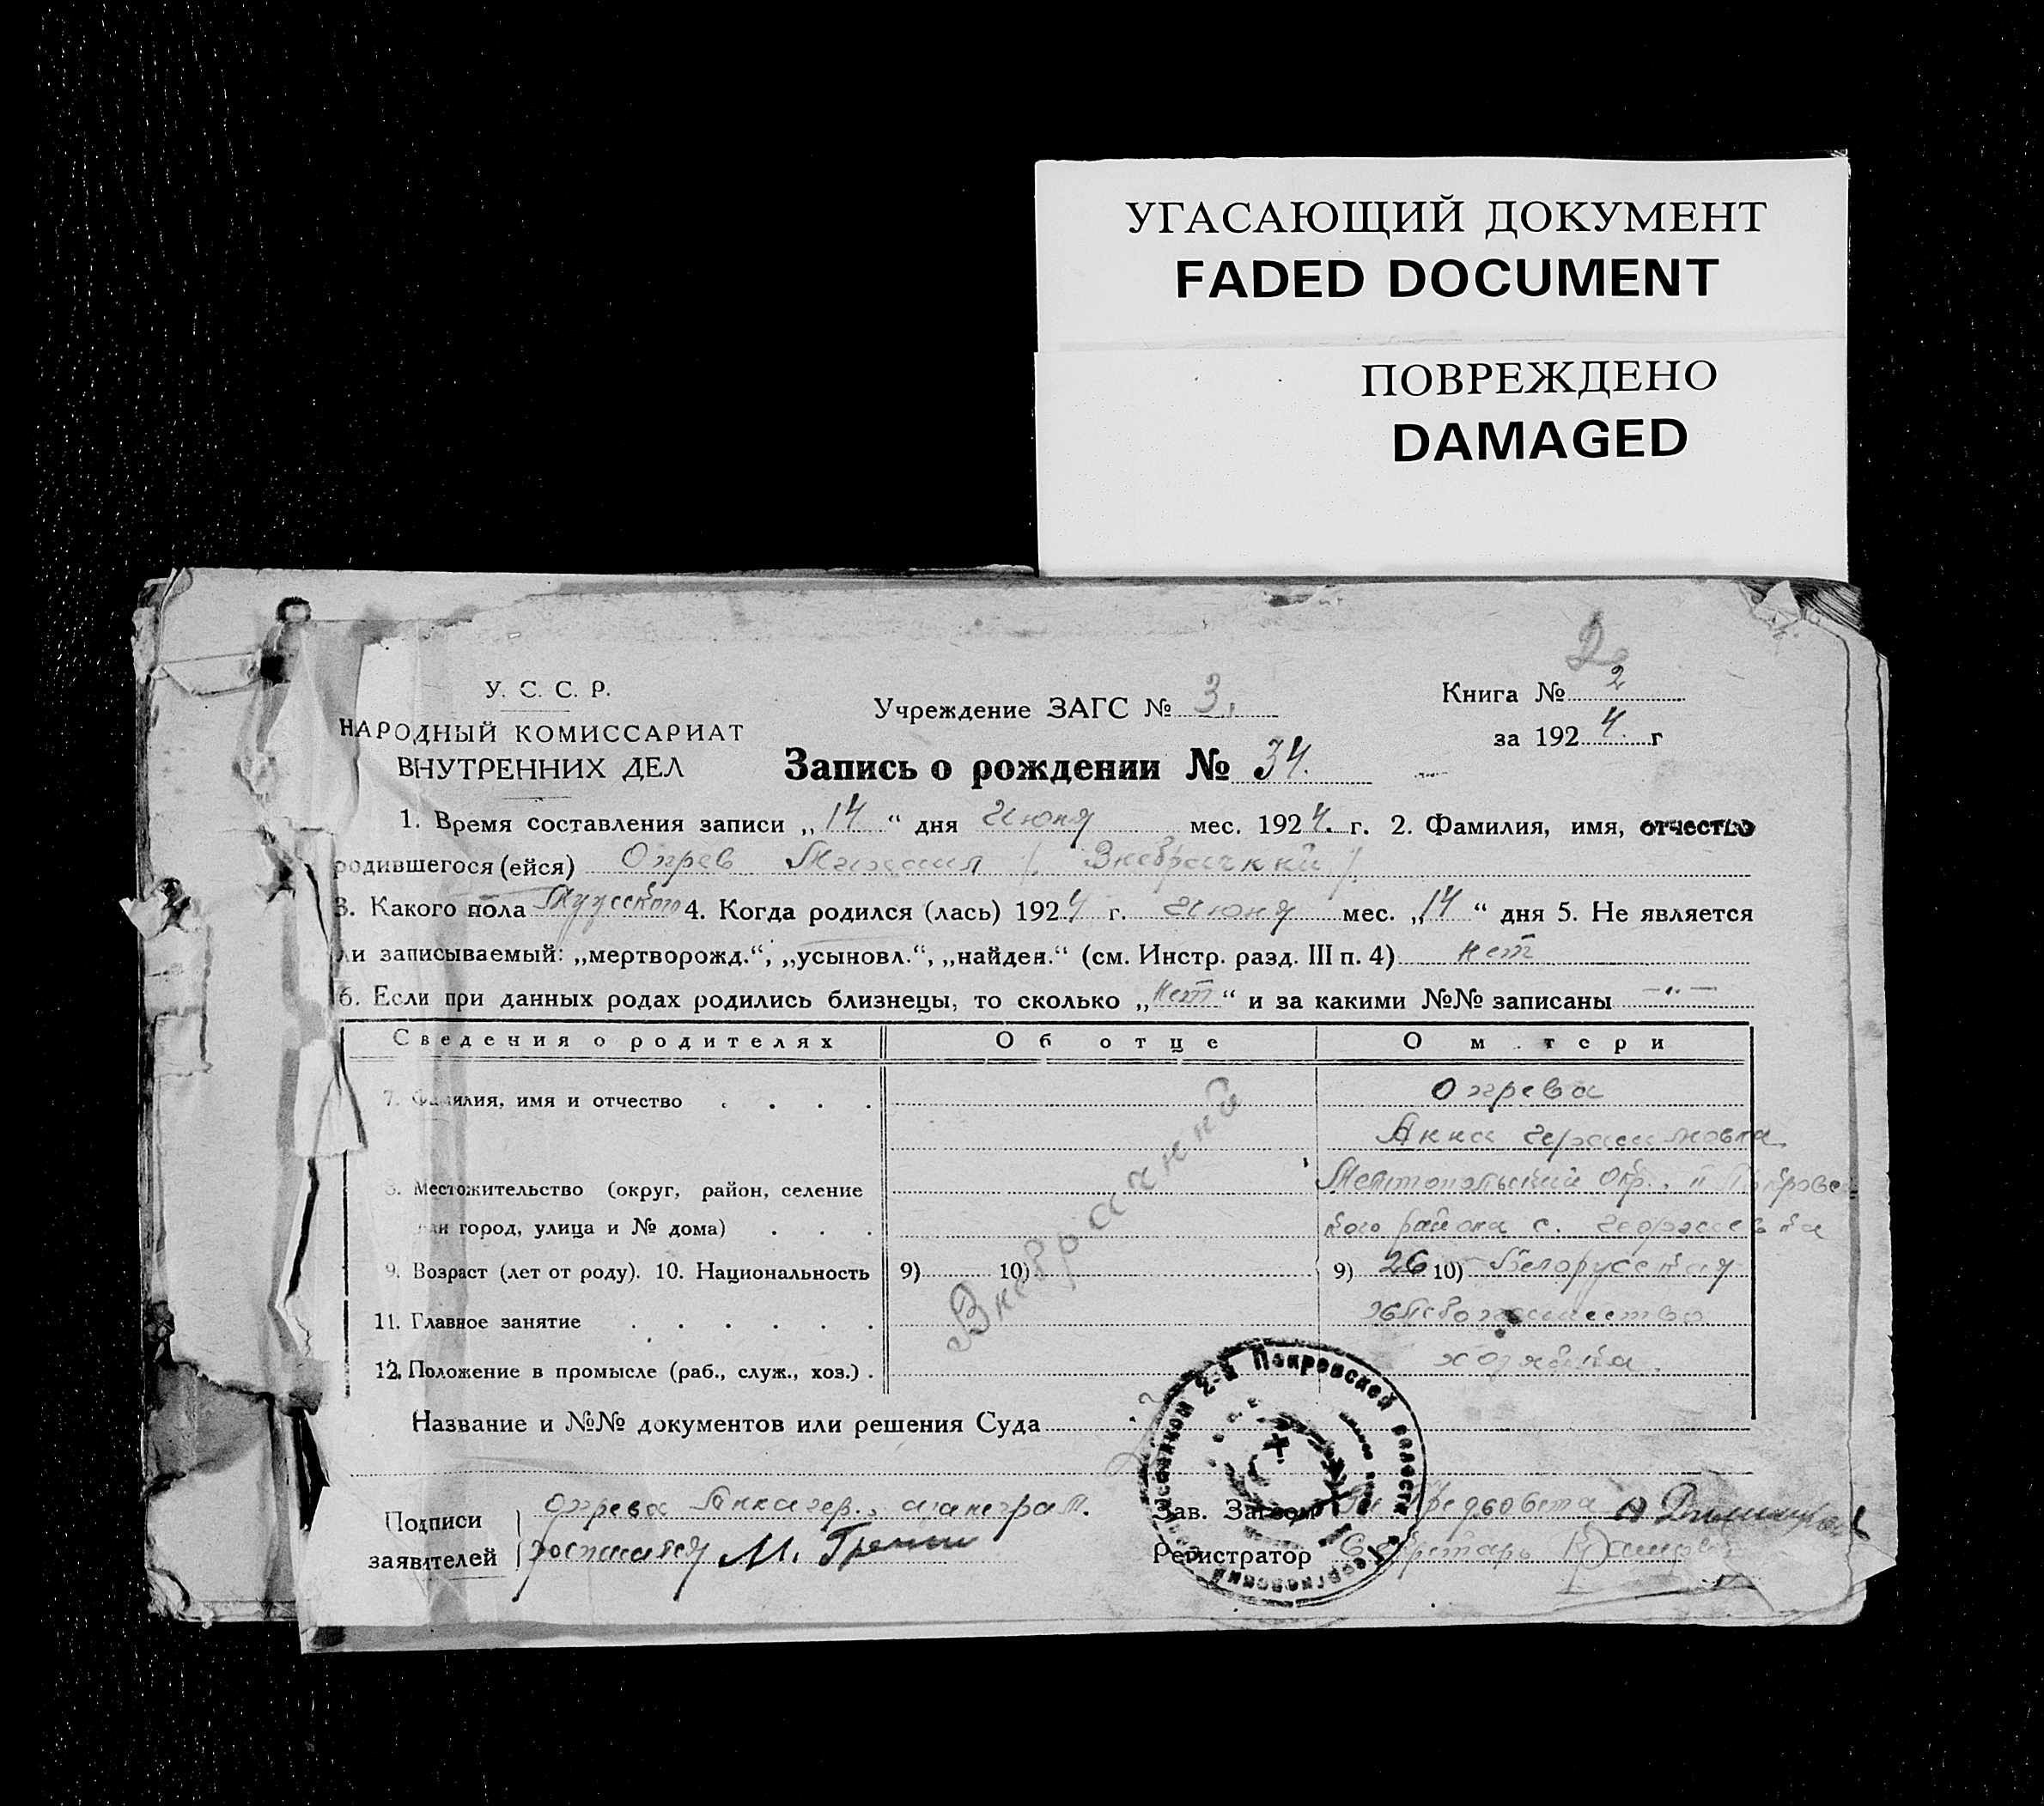 УГАСАЮЩИЙ ДОКУМЕНТ
FADED DOCUMENT
ПОВРЕЖДЕНО
DAMAGED
У. С. С. Р.
НАРОДНЫЙ КОМИССАРИАТ
ВНУТРЕННИХ ДЕЛ
Учреждение ЗАГС № 3.
Книга № 2
за 1924. г
Запись о рождении № 34.
1. Время составления записи „14“ дня Июня мес. 1924. г. 2. Фамилия, имя, отчество
родившегося (ейся) Михаил /. Внебрачний /.
3. Какого пола Мужского 4. Когда родился (лась) 1924 г. Июня мес. „14“ дня 5. Не является
ли записываемый: „мертворожд.“, „усыновл.“, „найден.“ (см. Инстр. разд. III п. 4) нет
6. Если при данных родах родились близнецы, то сколько „нет“ и за какими №№ записаны —„—
Сведения о родителях Об отце О м тери
7. Фамилия, имя и отчество . . . .
Анна Герасимовна
8. Местожительство (округ, район, селение Окр.,
или город, улица и № дома) . . . района с.
9. Возраст (лет от роду). 10. Национальность 9) 10) 9) 26 10) Белорусская
11. Главное занятие . . . . . .
12. Положение в промысле (раб., служ., хоз.) . хозяйка.
Название и №№ документов или решения Суда
2-й Покровской волости
Подписи
заявителей
Анна Гер., а за неграм.
М.
Зав. Загсом Предсовета
Регистратор Секретарь